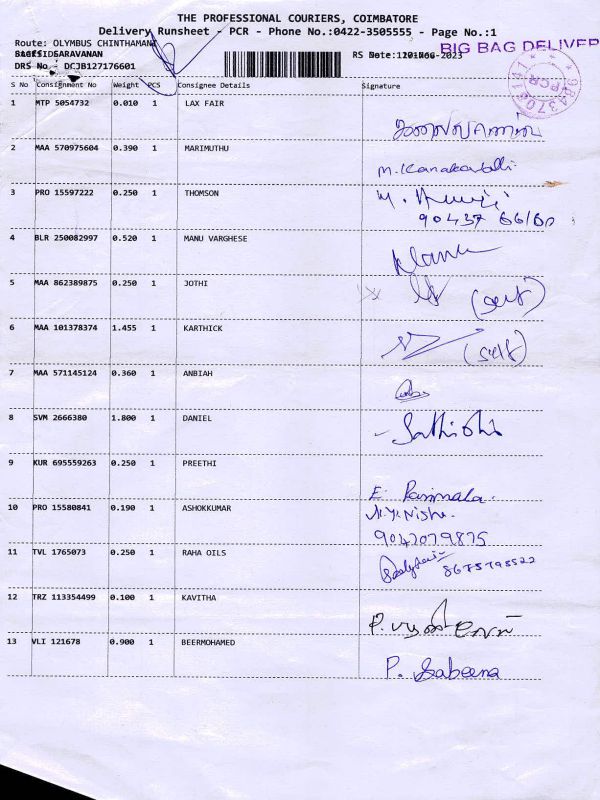 THE PROFESSIONAL COURIERS, COIMBATORE
Delivery Runsheet - PCR - Phone No.:0422-3505555 - Page No.:1
Route: OLYMBUS CHINTHAMANI
BIG BAG DELIVER
SARAVANAN
DRS No DCJB127176601
S No Consignment No Weight PCS Consignee Details Signature
1 MTP 5054732 0.010 1 LAX FAIR
2 MAA 570975604 0.390 1 MARIMUTHU
M. Kanakavalli
3 PRO 15597222 0.250 1 THOMSON
4 BLR 250082997 0.520 1 MANU VARGHESE
5 MAA 862389875 0.250 1 JOTHI
(self)
6 MAA 101378374 1.455 1 KARTHICK
(self)
7 MAA 571145124 0.360 1 ANBIAH
8 SVM 2666380 1.800 1 DANIEL
9 KUR 695559263 0.250 1 PREETHI
E. Parimala.
10 PRO 15580841 0.190 1 ASHOKKUMAR
9042079875
11 TVL 1765073 0.250 1 RAHA OILS
8675798522
12 TRZ 113354499 0.100 1 KAVITHA
13 VLI 121678 0.900 1 BEERMOHAMED
P. Sabeena